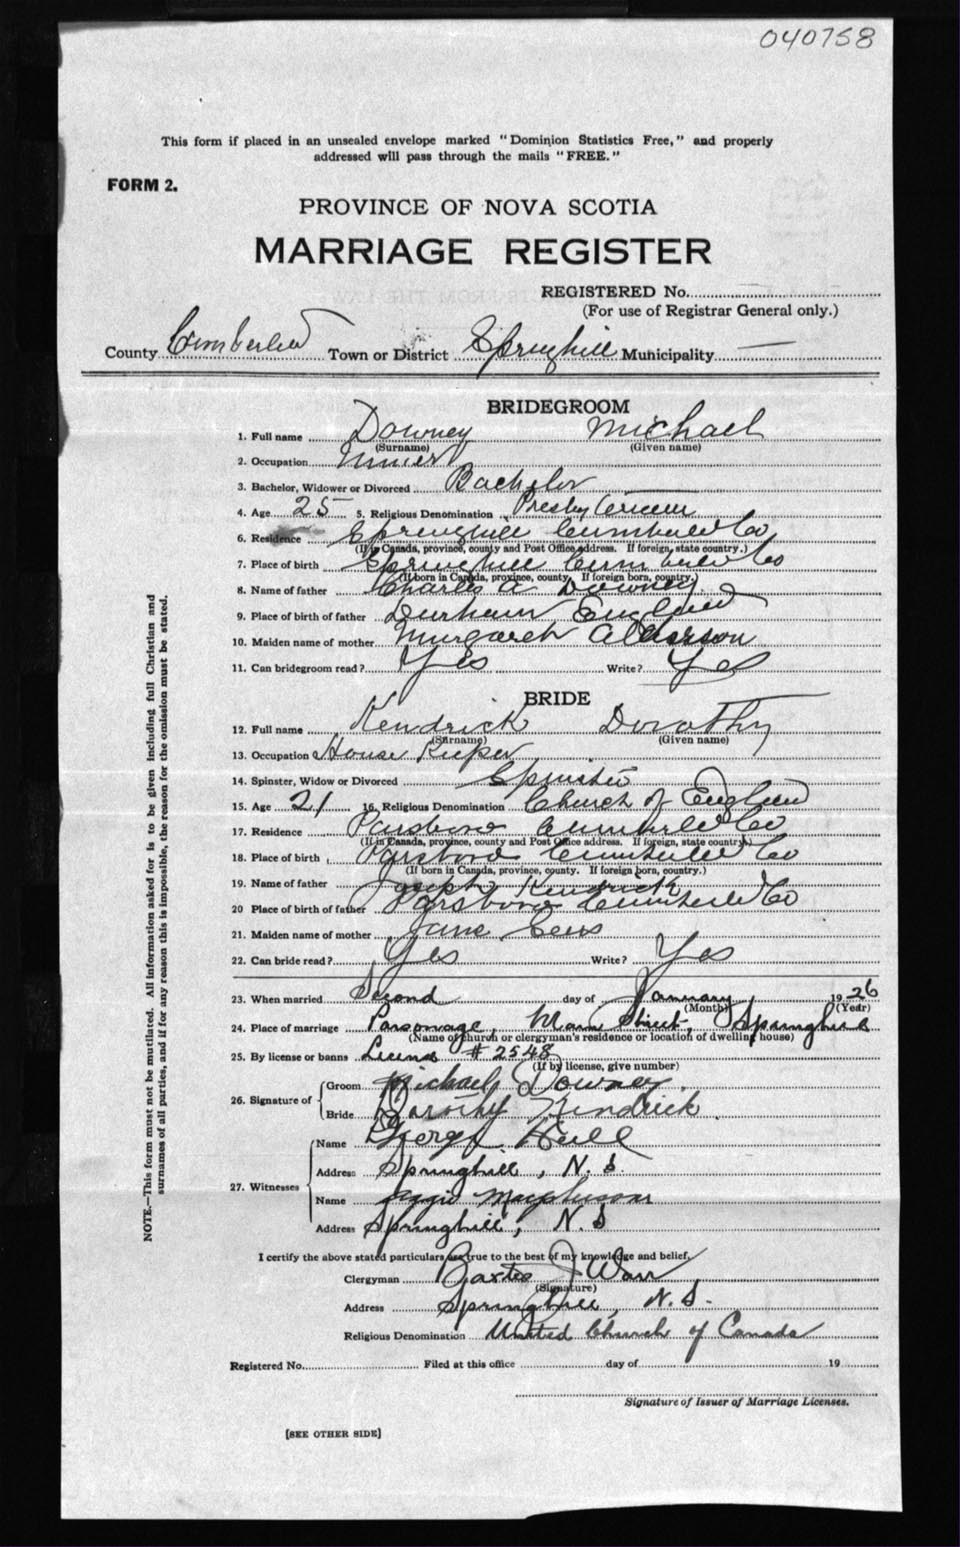 040758
This form if placed in an unsealed envelope marked "Dominion Statistics Free," and properly
addressed will pass through the mails "FREE."
FORM 2.
PROVINCE OF NOVA SCOTIA
MARRIAGE REGISTER
REGISTERED No.
(For use of Registrar General only.)
County Cumberland Town or District Springhill Municipality —
BRIDEGROOM
1. Full name Downey Michael
(Surname) (Given name)
2. Occupation Miner
3. Bachelor, Widower or Divorced Bachelor
4. Age 25 5. Religious Denomination Presbyterian
6. Residence Springhill Cumberland Co
(If in Canada, province, county and Post Office address. If foreign, state country.)
7. Place of birth Springhill Cumberland Co
(If born in Canada, province, county. If foreign born, country.)
8. Name of father Charles A Downey
9. Place of birth of father Durham England
10. Maiden name of mother Margaret Alderson
11. Can bridegroom read? Yes Write? Yes
BRIDE
12. Full name Kendrick Dorothy
(Surname) (Given name)
13. Occupation House Keeper
14. Spinster, Widow or Divorced Spinster
15. Age 21 16. Religious Denomination Church of England
17. Residence Parsboro Cumberland Co
(If in Canada, province, county and Post Office address. If foreign, state country.)
18. Place of birth Parsboro Cumberland Co
(If born in Canada, province, county. If foreign born, country.)
19. Name of father Joseph Kendrick
20 Place of birth of father Parsboro Cumberland Co
21. Maiden name of mother Jane
22. Can bride read? Yes Write? Yes
23. When married Second day of January 1926
(Month) (Year)
24. Place of marriage Parsonage, Main Street, Springhill
(Name of church or clergyman's residence or location of dwelling house)
25. By license or banns License # 2548
(If by license, give number)
26. Signature of Groom Michael Downey.
Bride Dorothy Kendrick
27. Witnesses Name George Hull
Address Springhill, N.S.
Name Macpherson
Address Springhill, N.S
I certify the above stated particulars are true to the best of my knowledge and belief,
Clergyman Baxter J Warr
(Signature)
Address Springhill, N.S.
Religious Denomination United Church of Canada
Registered No. Filed at this office day of 19
Signature of Issuer of Marriage Licenses.
[SEE OTHER SIDE]
NOTE.—This form must not be mutilated. All information asked for is to be given including full Christian and
surnames of all parties, and if for any reason this is impossible, the reason for the omission must be stated.